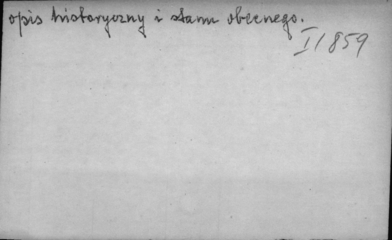 opis historyczny i stanu obecnego.
II 859